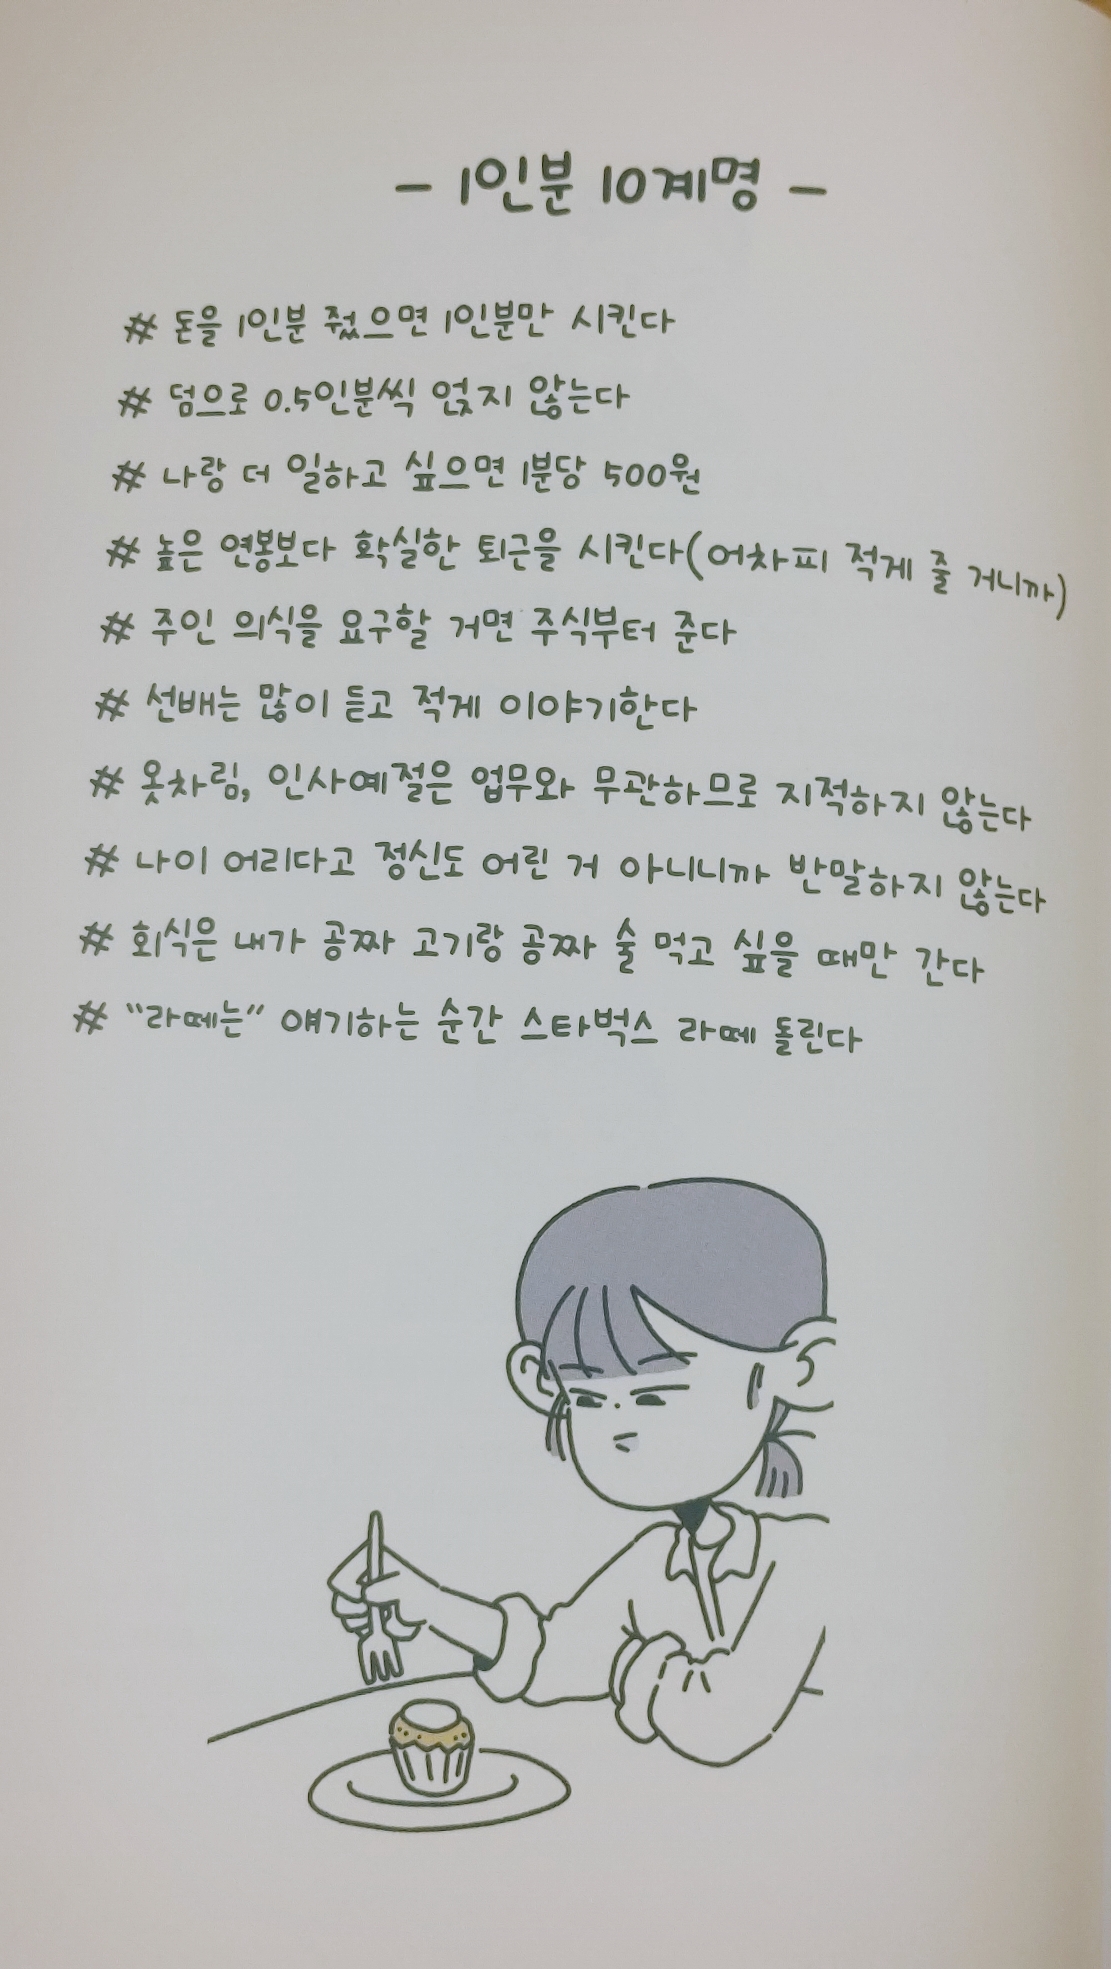 - 1인분 10계명 -
# 돈을 1인분 줬으면 1인분만 시킨다
# 덤으로 0.5인분씩 얹지 않는다
# 나랑 더 일하고 싶으면 1분당 500원
# 높은 연봉보다 확실한 퇴근을 시킨다(어차피 적게 줄 거니까)
# 주인 의식을 요구할 거면 주식부터 준다
# 선배는 많이 듣고 적게 이야기한다
# 옷차림, 인사예절은 업무와 무관하므로 지적하지 않는다
# 나이 어리다고 정신도 어린 거 아니니까 반말하지 않는다
# 회식은 내가 공짜 고기랑 공짜 술 먹고 싶을 때만 간다
# "라떼는" 얘기하는 순간 스타벅스 라떼 돌린다